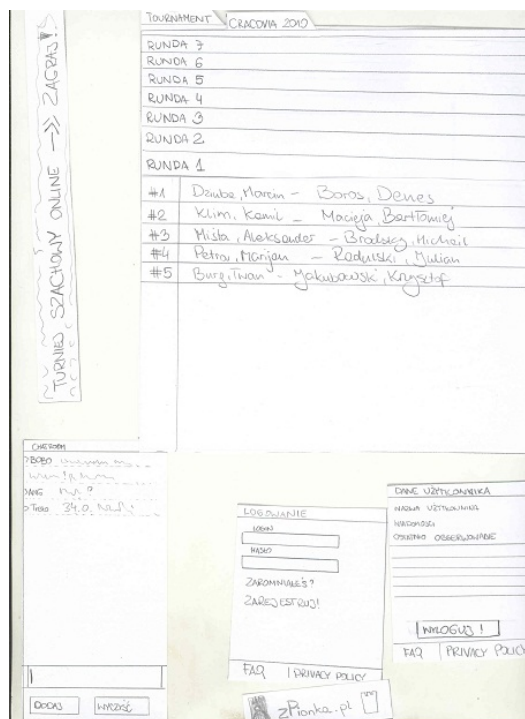 TURNIEJ SZACHOWY ONLINE →>> ZAGRAJ!
TOURNAMENT
CRACOVIA 2010
RUNDA 7
RUNDA 6
RUNDA 5
RUNDA 4
RUNDA 3
RUNDA 2
RUNDA 1
#1 Dziuba, Marcin - Boros, Denes
#2 Klim, Kamil - Macieja Bartłomiej
#3 Miśta, Aleksander - Brodsky, Michail
#4 Petrov, Marijan - Radulski, Julian
#5 Burg, Twan - Jakubowski, Krzysztof
CHATROOM
>BOBO
34.0.
DODAJ
WYCZYŚĆ
LOGOWANIE
LOGIN
HASŁO
ZAPOMNIAŁEŚ?
ZAREJESTRUJ!
FAQ | PRIVACY POLICY
zPionka.pl
DANE UŻYTKOWNIKA
NAZWA UŻYTKOWNIKA
WIADOMOŚCI
OSTATNIO OBSERWOWANE
WYLOGUJ!
FAQ | PRIVACY POLICY